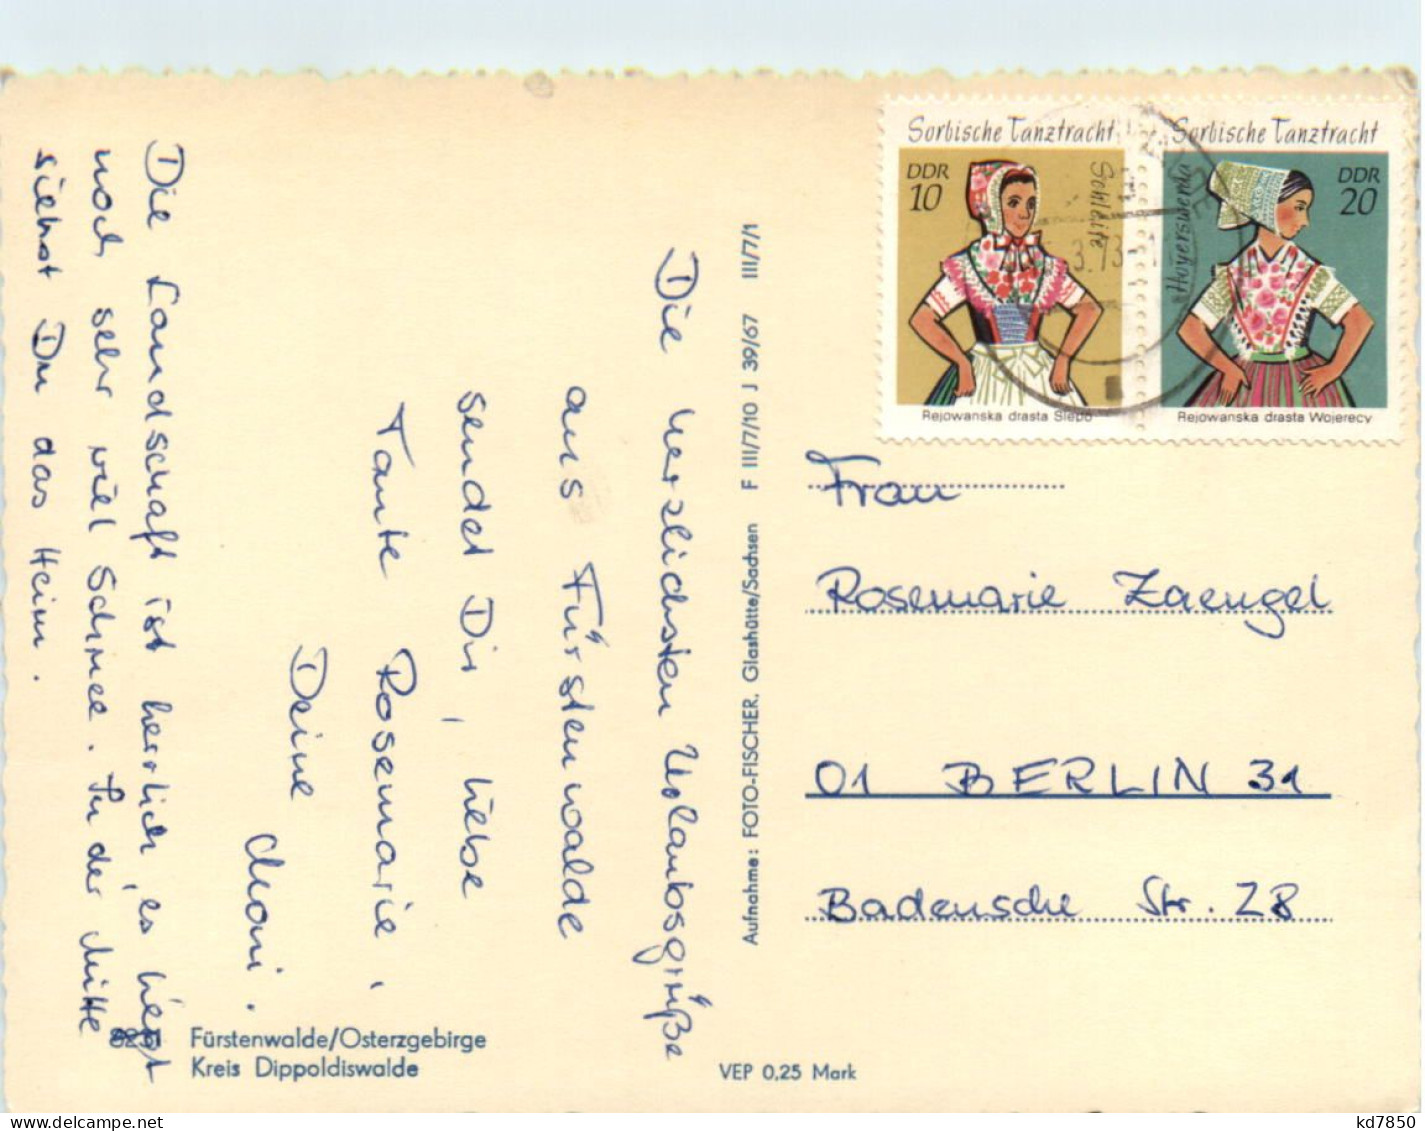 Sorbische Tanztracht
DDR
10
Schleife
Rejowanska drasta Slepo
Sorbische Tanztracht
DDR
20
Hoyerswerda
Rejowanska drasta Wojerecy
3.73
Die herzlichsten Urlaubsgrüße
aus Fürstenwalde
sendet Dir, liebe
Tante Rosemarie,
Deine
Moni.
Die Landschaft ist herrlich, es liegt
noch sehr viel Schnee. In der Mitte
siehst Du das Heim.
Frau
Rosemarie Zaengel
01 BERLIN 31
Badensche Str. 28
Aufnahme: FOTO-FISCHER, Glashütte/Sachsen F III/7/10 J 39/67 III/7/1
8231 Fürstenwalde/Osterzgebirge
Kreis Dippoldiswalde
VEP 0,25 Mark
www.delcampe.net
kd7850